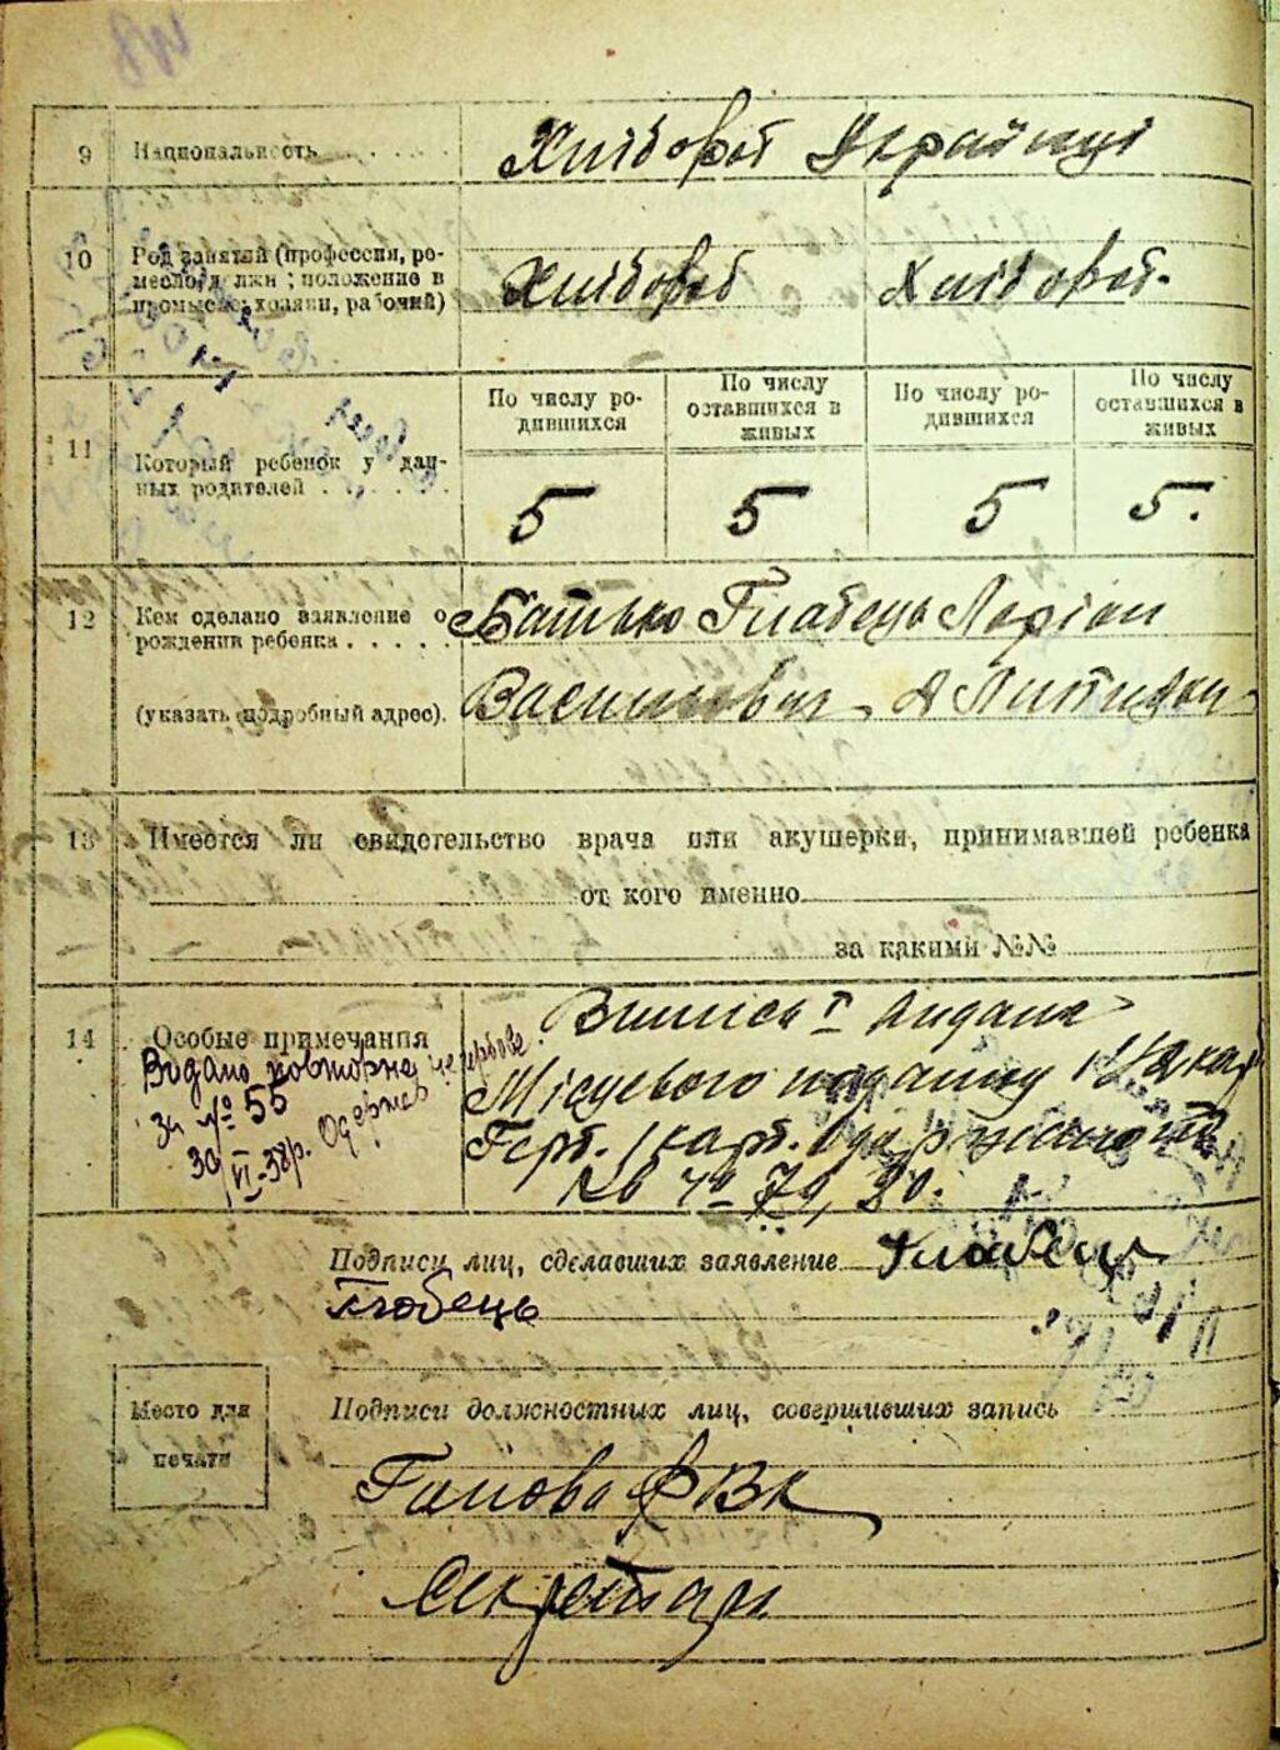 9 Национальность Хлібороб Українці
10 Род занятий (профессия, ре-
месло, д лжн ; положение в
промысле: хозяин, рабочий) Хлібороб Хлібороб.
11 Который ребенок у дан-
ных родителей
По числу ро-
дившихся
По числу
оставшихся в
живых
По числу ро-
дившихся
По числу
оставшихся в
живых
5 5 5 5.
12 Кем сделано заявление о
рождении ребенка
Батько Глабець Ларіон
(указать подробный адрес). Васильович
13 Имеется ли свидетельство врача или акушерки, принимавшей ребенка
от кого именно
за какими №№
14 Особые примечания
Видано повторне
за № 55
30/VI-38р. Одержав
Виписьㅤвидана
Місцевого податку
Герб. 1 карб.
№ 79, 80.
Подписи лиц, сделавших заявление Глабець
Глобець
Место для
печати
Подписи должностных лиц, совершивших запись
Голова
Секретарь